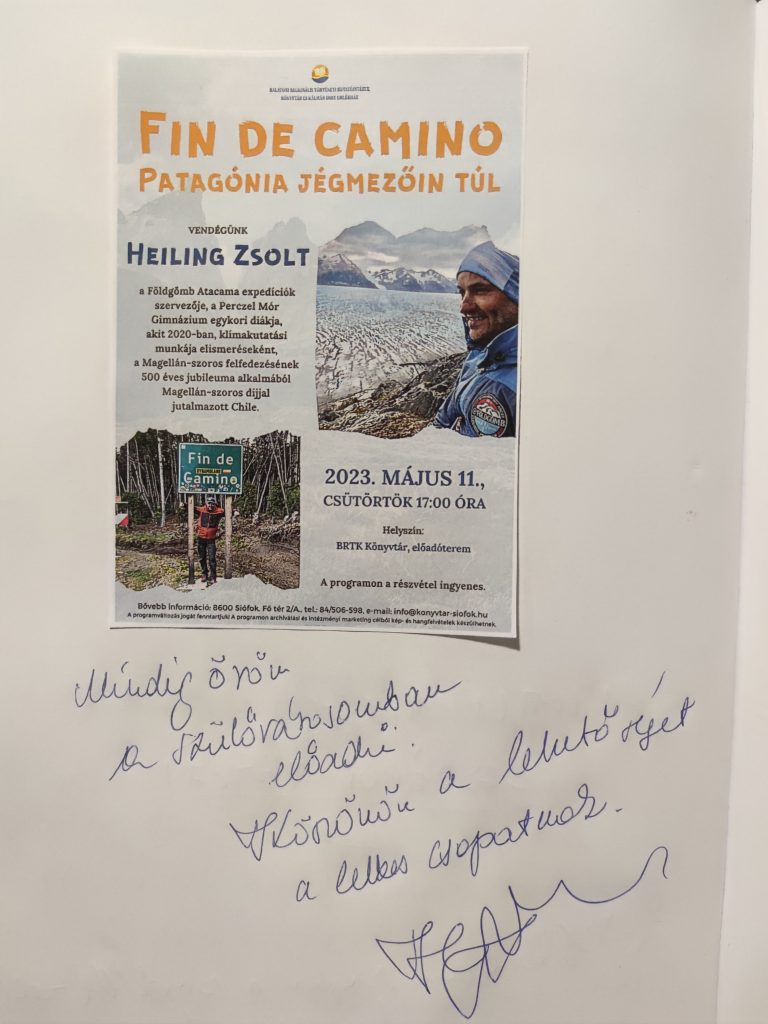 BALATONI REGIONÁLIS TÖRTÉNETI KUTATÓINTÉZET,
KÖNYVTÁR ÉS KÁLMÁN IMRE EMLÉKHÁZ
FIN DE CAMINO
PATAGÓNIA JÉGMEZŐIN TÚL
VENDÉGÜNK
HEILING ZSOLT
a Földgömb Atacama expedíciók
szervezője, a Perczel Mór
Gimnázium egykori diákja,
akit 2020-ban, klímakutatási
munkája elismeréseként,
a Magellán-szoros felfedezésének
500 éves jubileuma alkalmából
Magellán-szoros díjjal
jutalmazott Chile.
Fin de
Camino
2023. MÁJUS 11.,
CSÜTÖRTÖK 17:00 ÓRA
Helyszín:
BRTK Könyvtár, előadóterem
A programon a részvétel ingyenes.
Bővebb információ: 8600 Siófok, Fő tér 2/A., tel.: 84/506-598, e-mail: info@konyvtar-siofok.hu
A programváltozás jogát fenntartjuk! A programon archiválási és intézményi marketing célból kép- és hangfelvételek készülhetnek.
Mindig öröm
a szülővárosomban
előadni.
Köszönöm a lehetőséget
a lelkes csapatnak.